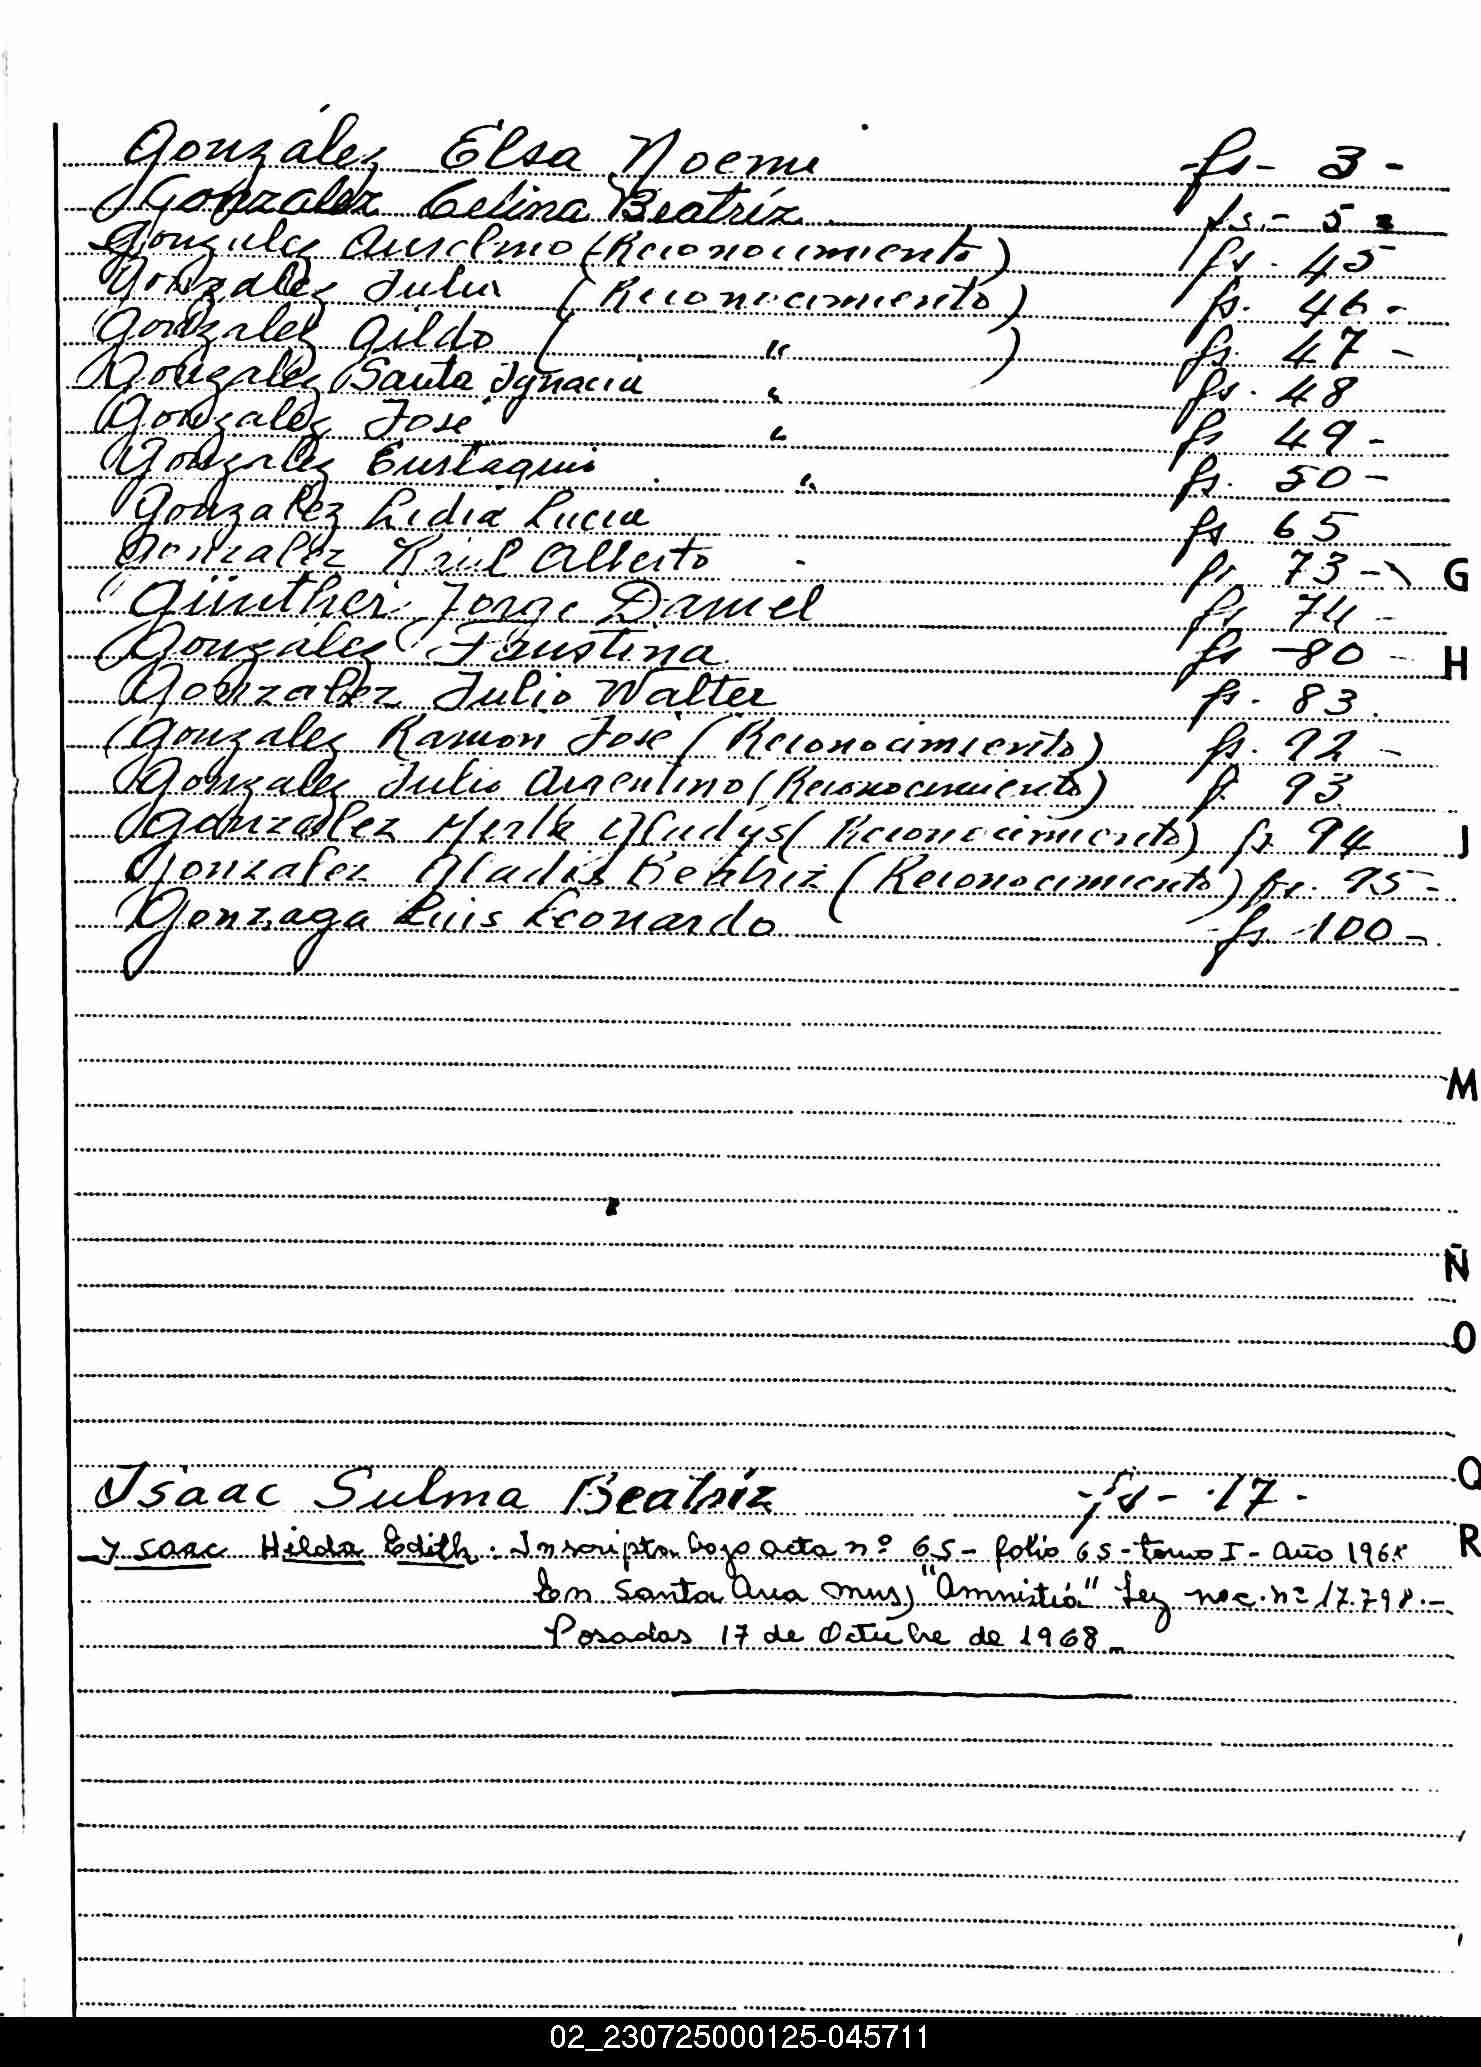 González Elsa Noemi fs- 3-
Gonzalez Celina Beatriz. fs.- 5-
Gonzalez Anselmo (Reconocimiento) fs. 45
González Julia (Reconocimiento) fs. 46-
González Gildo ( " ) fs. 47-
González Santa Ignacia " fs. 48
González José " fs 49-
González Eustaquio " fs. 50-
González Lidia Lucia fs 65
González Raúl Alberto fs 73-
Günther Jorge Daniel fs 74- G
González Faustina fs -80- H
Gonzalez Julio Walter fs. 83.
Gonzalez Ramon José (Reconocimiento) fs. 92-
Gonzalez Julio Argentino (Reconocimiento) f. 93
Gonzalez Mirta Gladys (Reconocimiento) fs 94 J
Gonzalez Gladis Beatriz (Reconocimiento) fs. 95-
Gonzaga Luis Leonardo fs. 100-
M
Ñ
O
Q
Isaac Sulma Beatríz fs- 17-
Ysaac Hilda Edith. Inscripta bajo acta nº 65- folio 65- tomo I- Año 1968 R
En Santa Ana mns, "Amnistía" Ley nac. nº 17.798.-
Posadas 17 de Octubre de 1968-
02_230725000125-045711